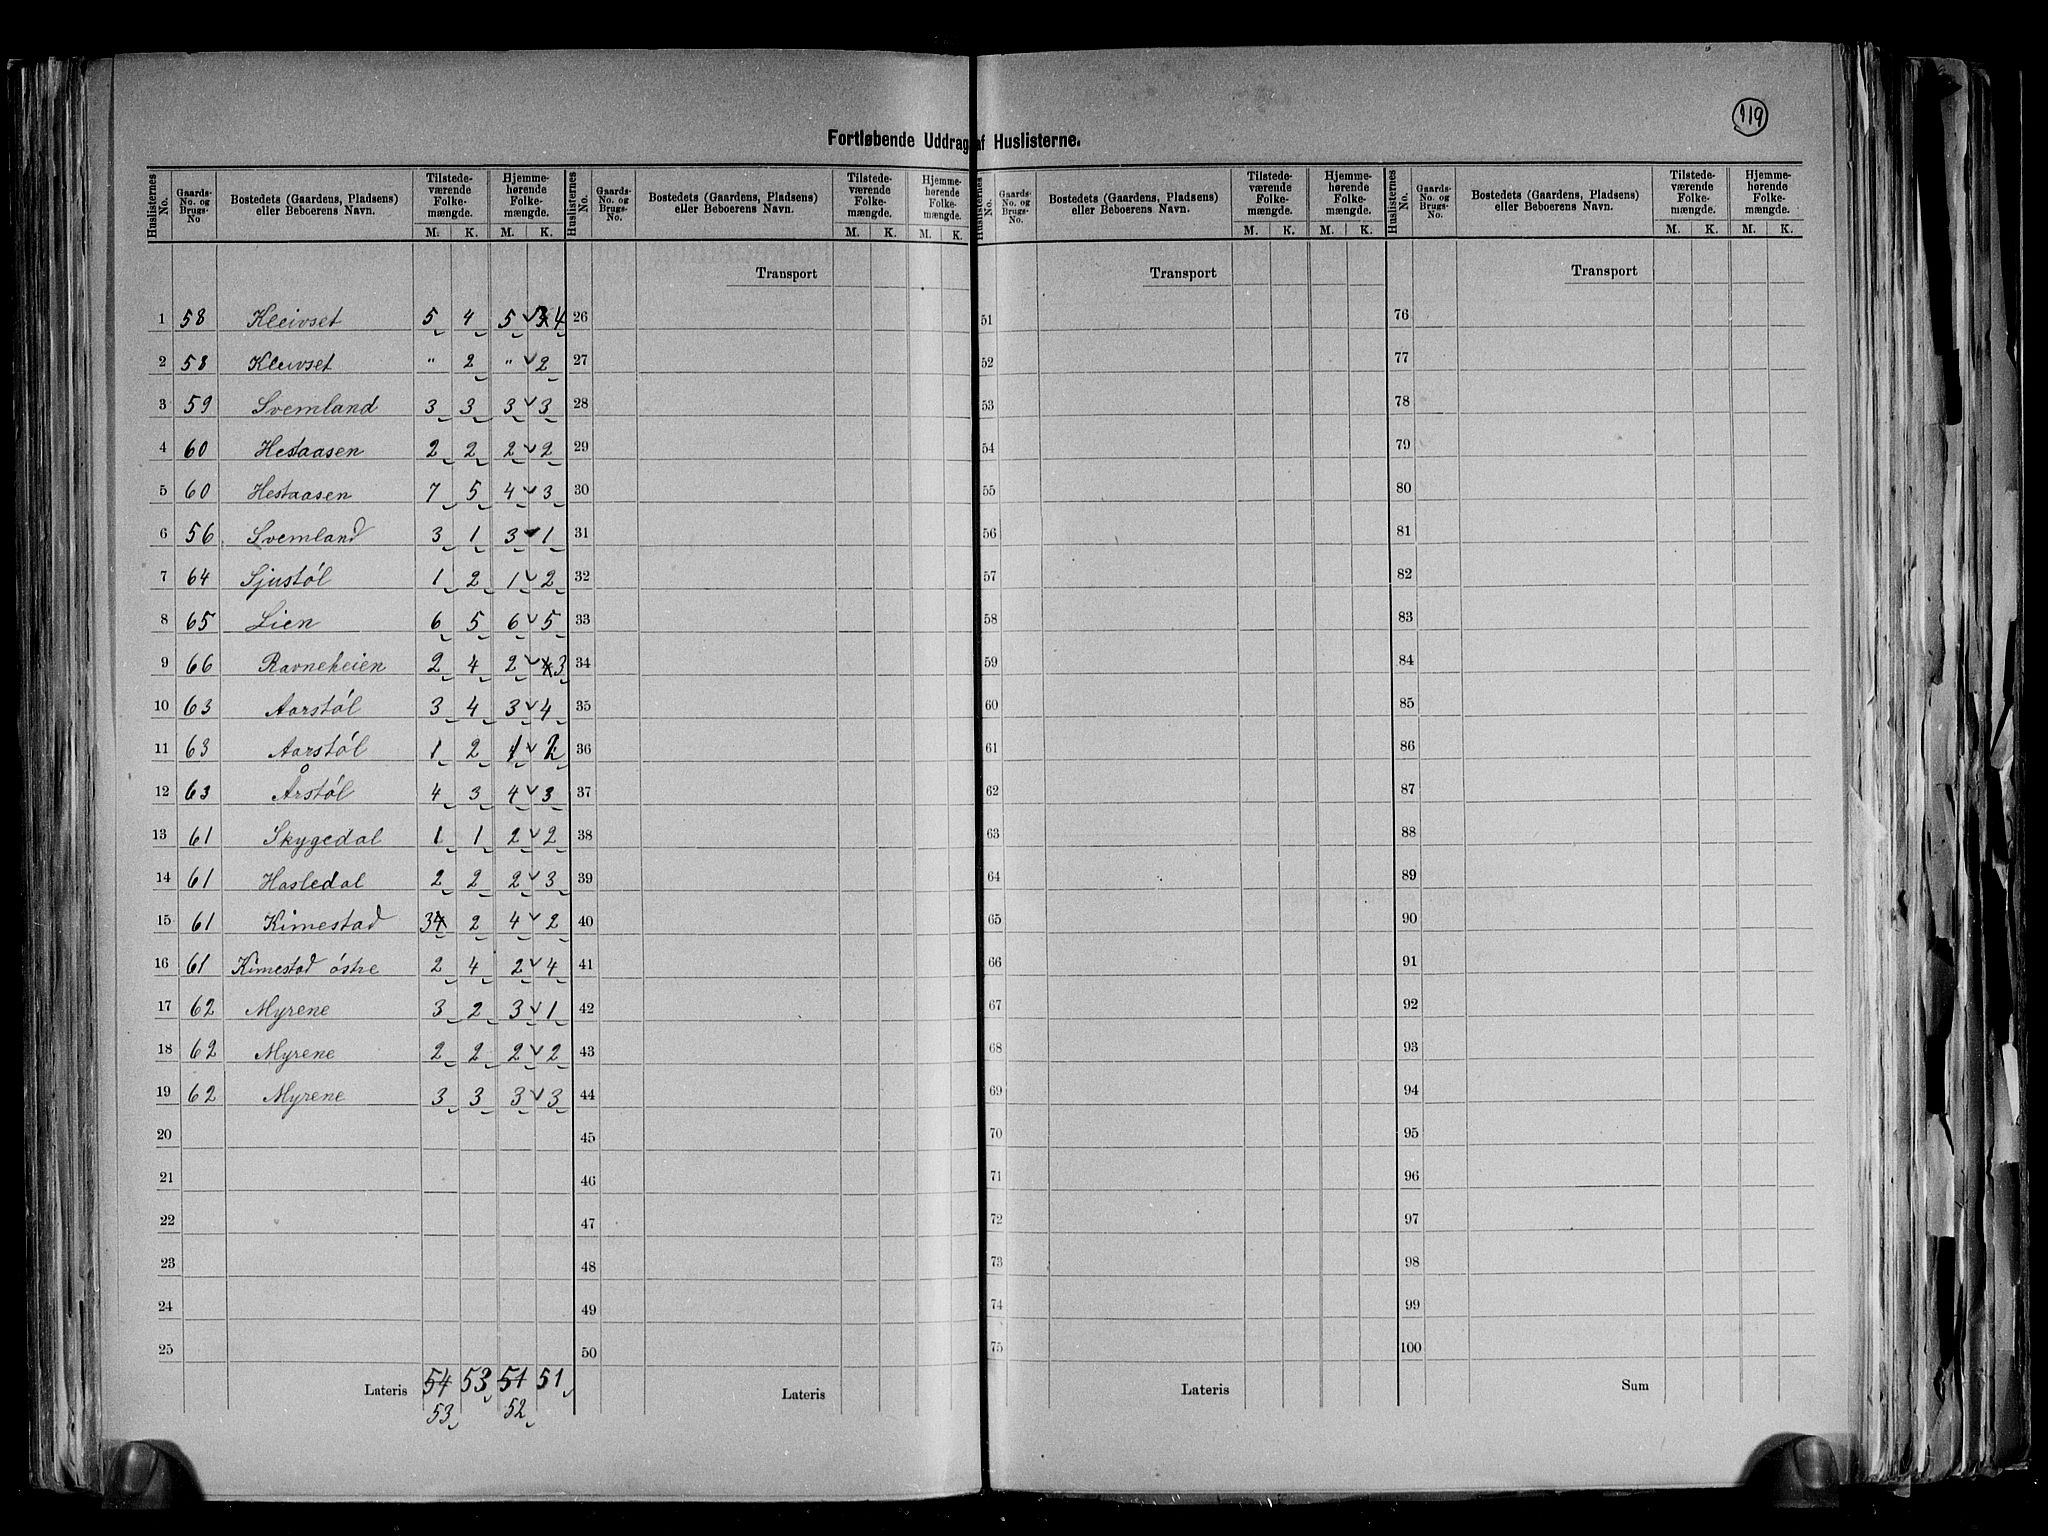 119
Fortløbende Uddrag af Huslisterne.
Huslisternes No. Gaards-No. og Brugs-No Bostedets (Gaardens, Pladsens) eller Beboerens Navn. Tilstedeværende Folkemængde. M. K. Hjemmehørende Folkemængde. M. K.
Huslisternes No. Gaards-No. og Brugs-No. Bostedets (Gaardens, Pladsens) eller Beboerens Navn. Tilstedeværende Folkemængde. M. K. Hjemmehørende Folkemængde. M. K.
Huslisternes No. Gaards-No. og Brugs-No. Bostedets (Gaardens, Pladsens) eller Beboerens Navn. Tilstedeværende Folkemængde. M. K. Hjemmehørende Folkemængde. M. K.
Huslisternes No. Gaards-No. og Brugs-No. Bostedets (Gaardens, Pladsens) eller Beboerens Navn. Tilstedeværende Folkemængde. M. K. Hjemmehørende Folkemængde. M. K.
Transport Transport Transport
1 58 Kleivset 5 4 5 3 4 26 51 76
2 58 Kleivset " 2 " 2 27 52 77
3 59 Svemland 3 3 3 3 28 53 78
4 60 Hestaasen 2 2 2 2 29 54 79
5 60 Hestaasen 7 5 4 3 30 55 80
6 56 Svemland 3 1 3 1 31 56 81
7 64 Sjustöl 1 2 1 2 32 57 82
8 65 Lien 6 5 6 5 33 58 83
9 66 Ravneheien 2 4 2 4 3 34 59 84
10 63 Aarstöl 3 4 3 4 35 60 85
11 63 Aarstöl 1 2 1 2 36 61 86
12 63 Årstöl 4 3 4 3 37 62 87
13 61 Skygedal 1 1 2 2 38 63 88
14 61 Hasledal 2 2 2 3 39 64 89
15 61 Kimestad 3 4 2 4 2 40 65 90
16 61 Kimestad östre 2 4 2 4 41 66 91
17 62 Myrene 3 2 3 1 42 67 92
18 62 Myrene 2 2 2 2 43 68 93
19 62 Myrene 3 3 3 3 44 69 94
20 45 70 95
21 46 71 96
22 47 72 97
23 48 73 98
24 49 74 99
25 50 75 100
Lateris 54 53 51 51 Lateris Lateris Sum
53 52